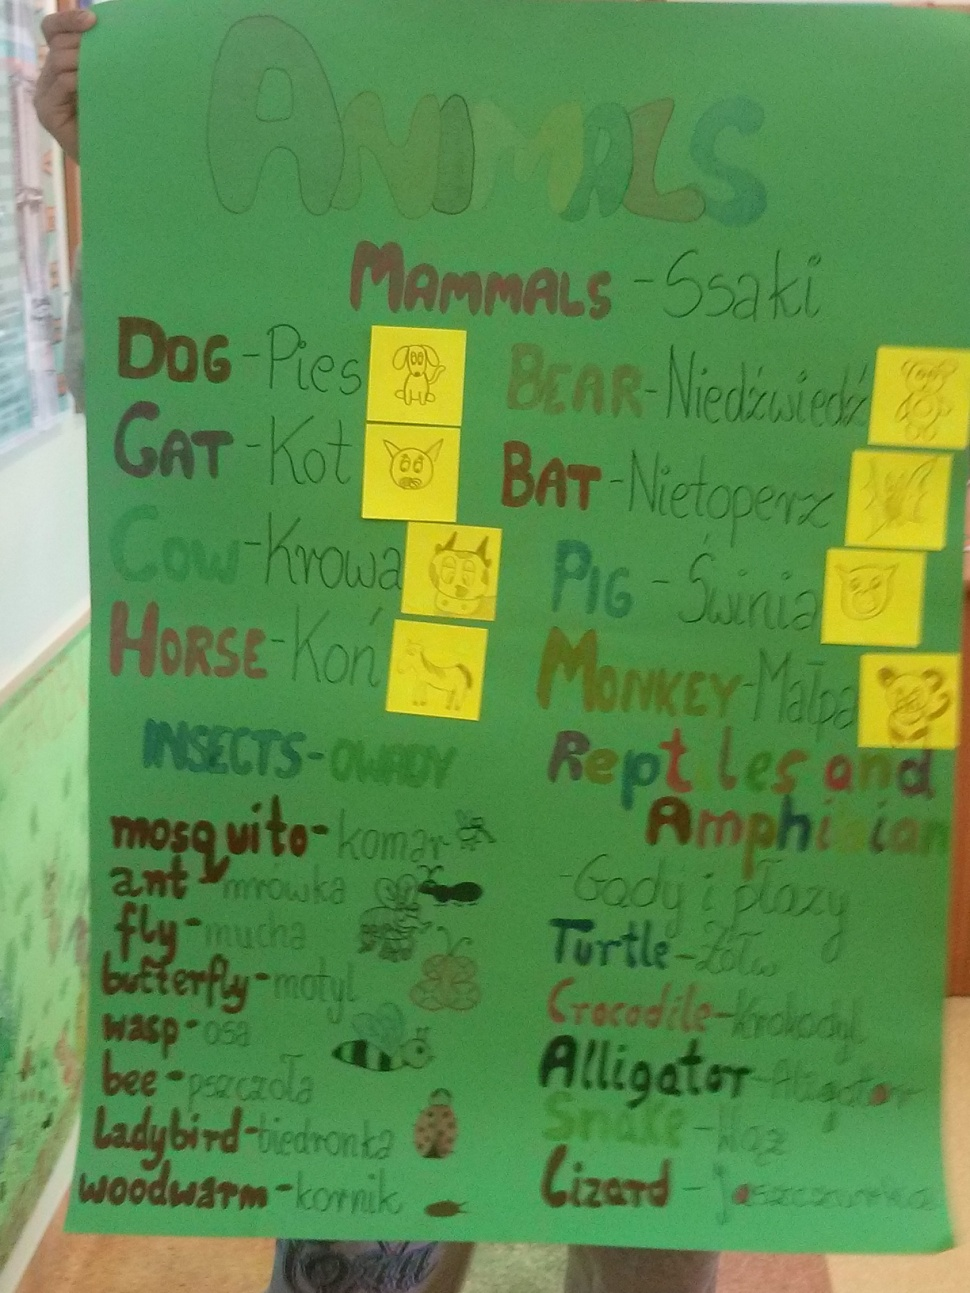 ANIMALS
MAMMALS - Ssaki
DOG - Pies
CAT - Kot
COW - Krowa
HORSE - Koń
BEAR - Niedźwiedź
BAT - Nietoperz
PIG - Świnia
MONKEY - Małpa
INSECTS - OWADY
mosquito - komar
ant - mrówka
fly - mucha
butterfly - motyl
wasp - osa
bee - pszczoła
Ladybird - biedronka
woodwarm - kornik
Reptiles and
Amphibian
- Gady i płazy
Turtle - Żółw
Crocodile - Krokodyl
Alligator - Aligator
Snake - Wąż
Lizard - Jaszczurka